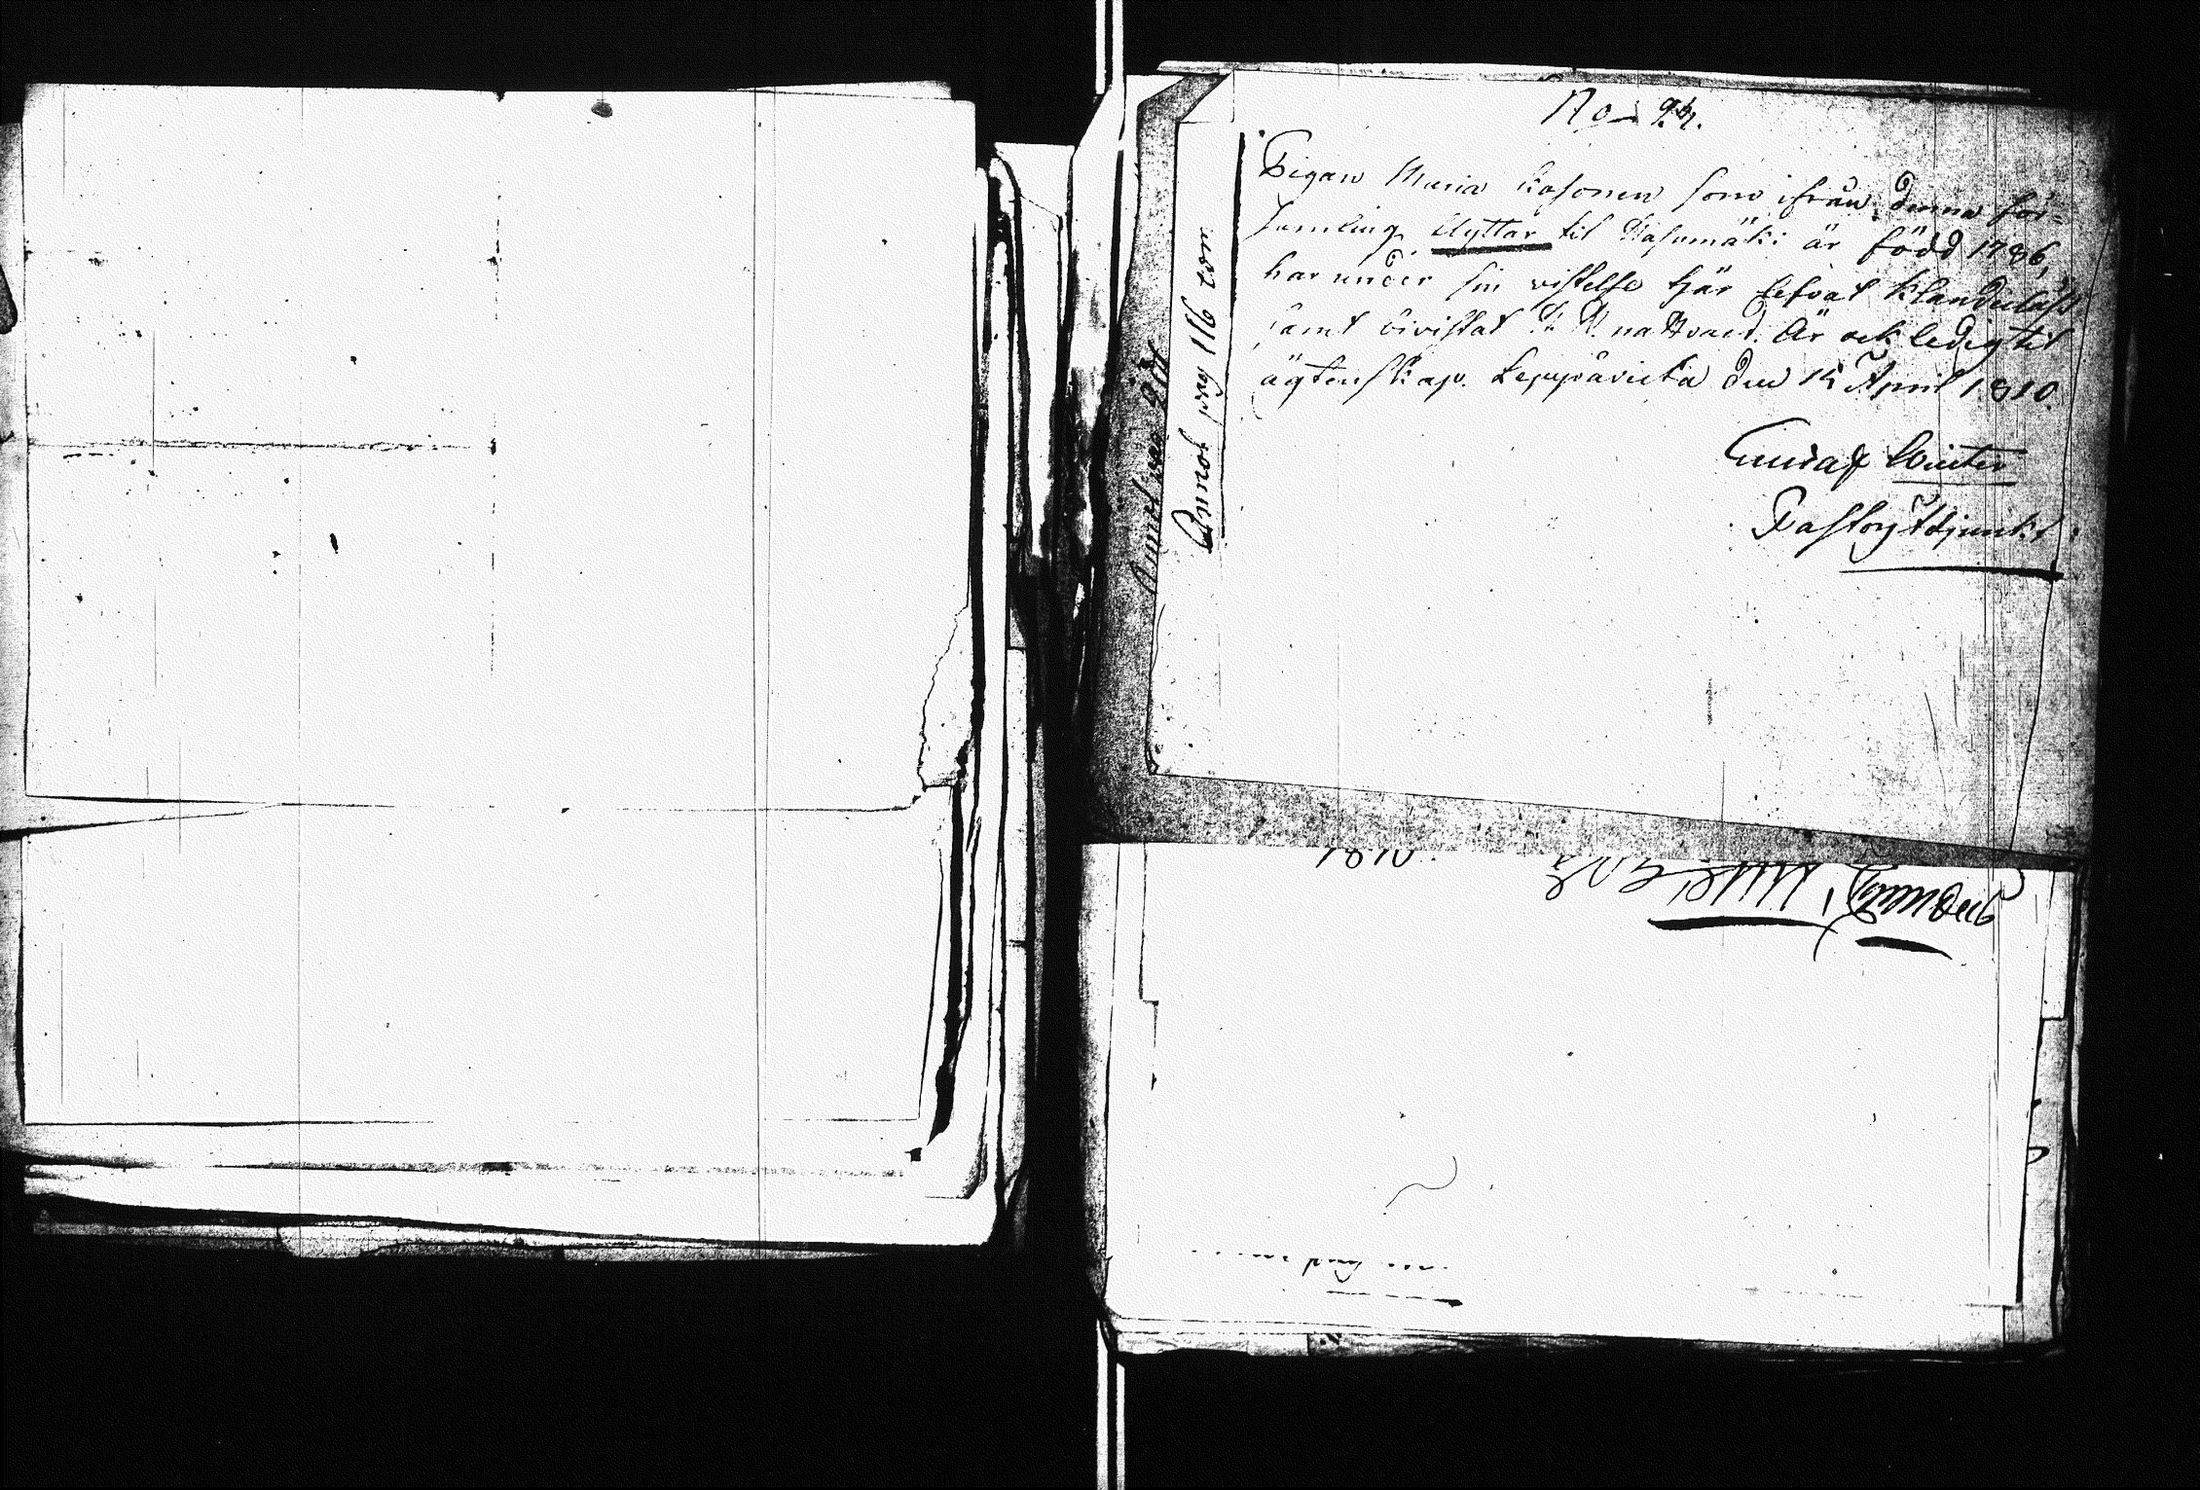 No 94.
Pigan Maria Kasonen som ifrån denna för=
samling flyttar til Hasumäki är född 1786,
har under sin vistelse här lefvat klanderlöst
samt bivistat H. H. nattvard. Är ock ledig til
ägtenskap. Leppävirta den 15 April 1810.
Gustaf Winter
Pastors Adjunkt.
Annot pag 116 ton
Annot pag
1810.